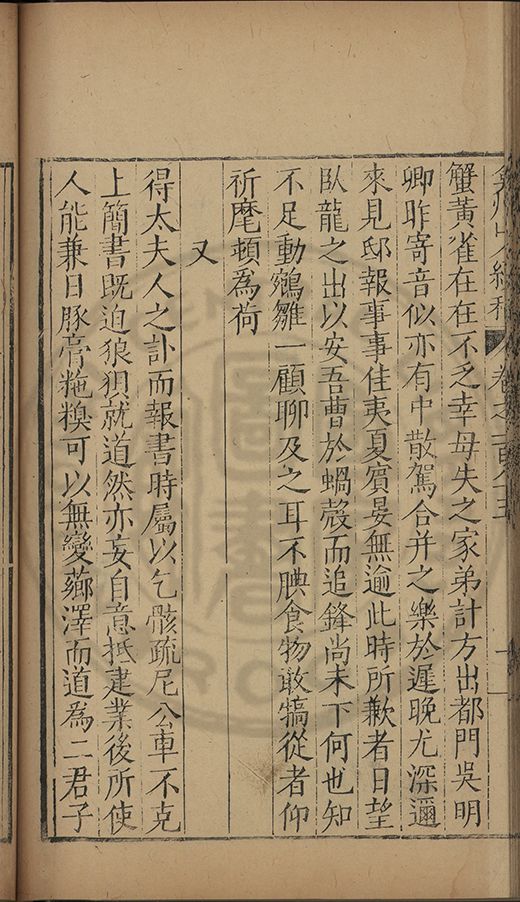 弇州山人續稿 卷之一百八十五
蟹黃雀在在不乏幸毋失之家弟計方出都門吳明
卿昨寄音似亦有中散駕合并之樂於遲晚尤深邇
來見邸報事事佳夷夏賓晏無逾此時所歉者日望
臥龍之出以安吾曹於蝸殼而追鋒尚未下何也知
不足動鵷雛一顧聊及之耳不腆食物敢犒從者仰
祈麾頓為荷
又
得太夫人之訃而報書時屬以乞骸疏尼公車不克
上簡書既迫狼狽就道然亦妄自意抵建業後所使
人能兼日豚膏粣糗可以無變薌澤而道為二君子